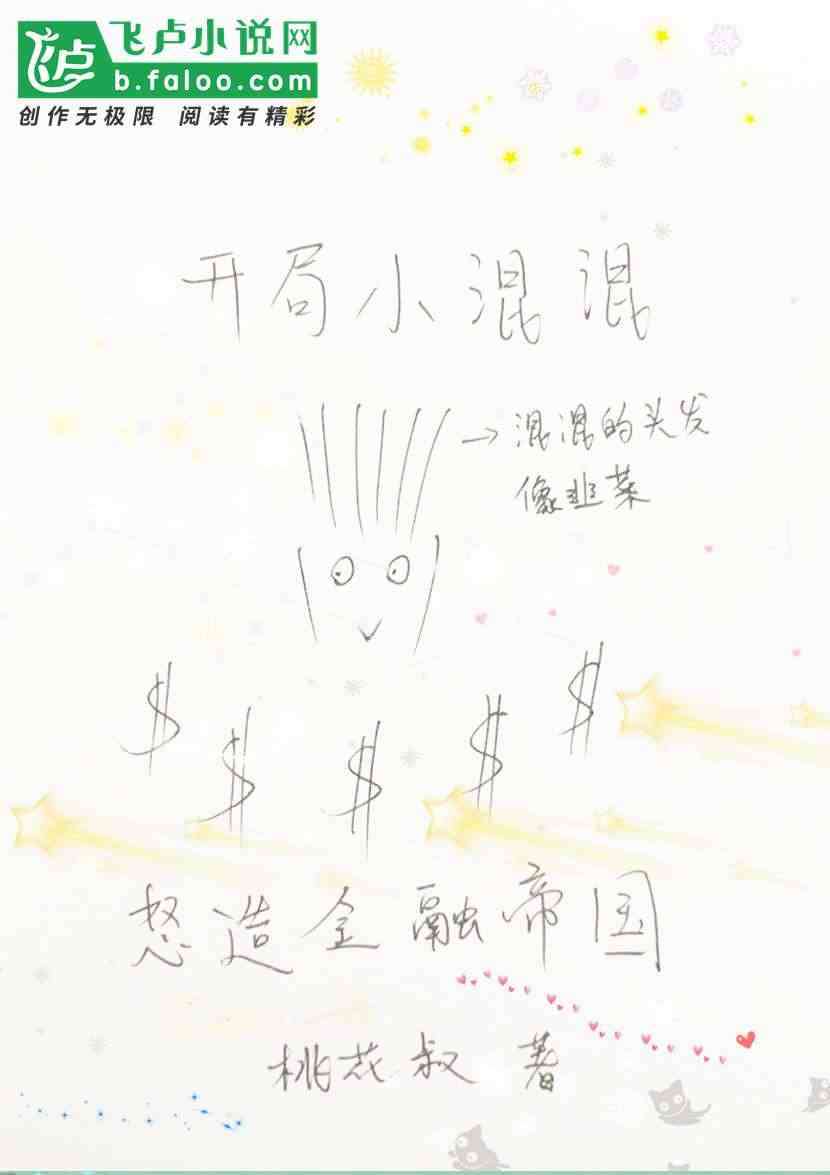 飞卢小说网
b.faloo.com
创作无极限 阅读有精彩
开局小混混
→混混的头发
像韭菜
$ $ $ $ $
怒造金融帝国
桃花叔 著